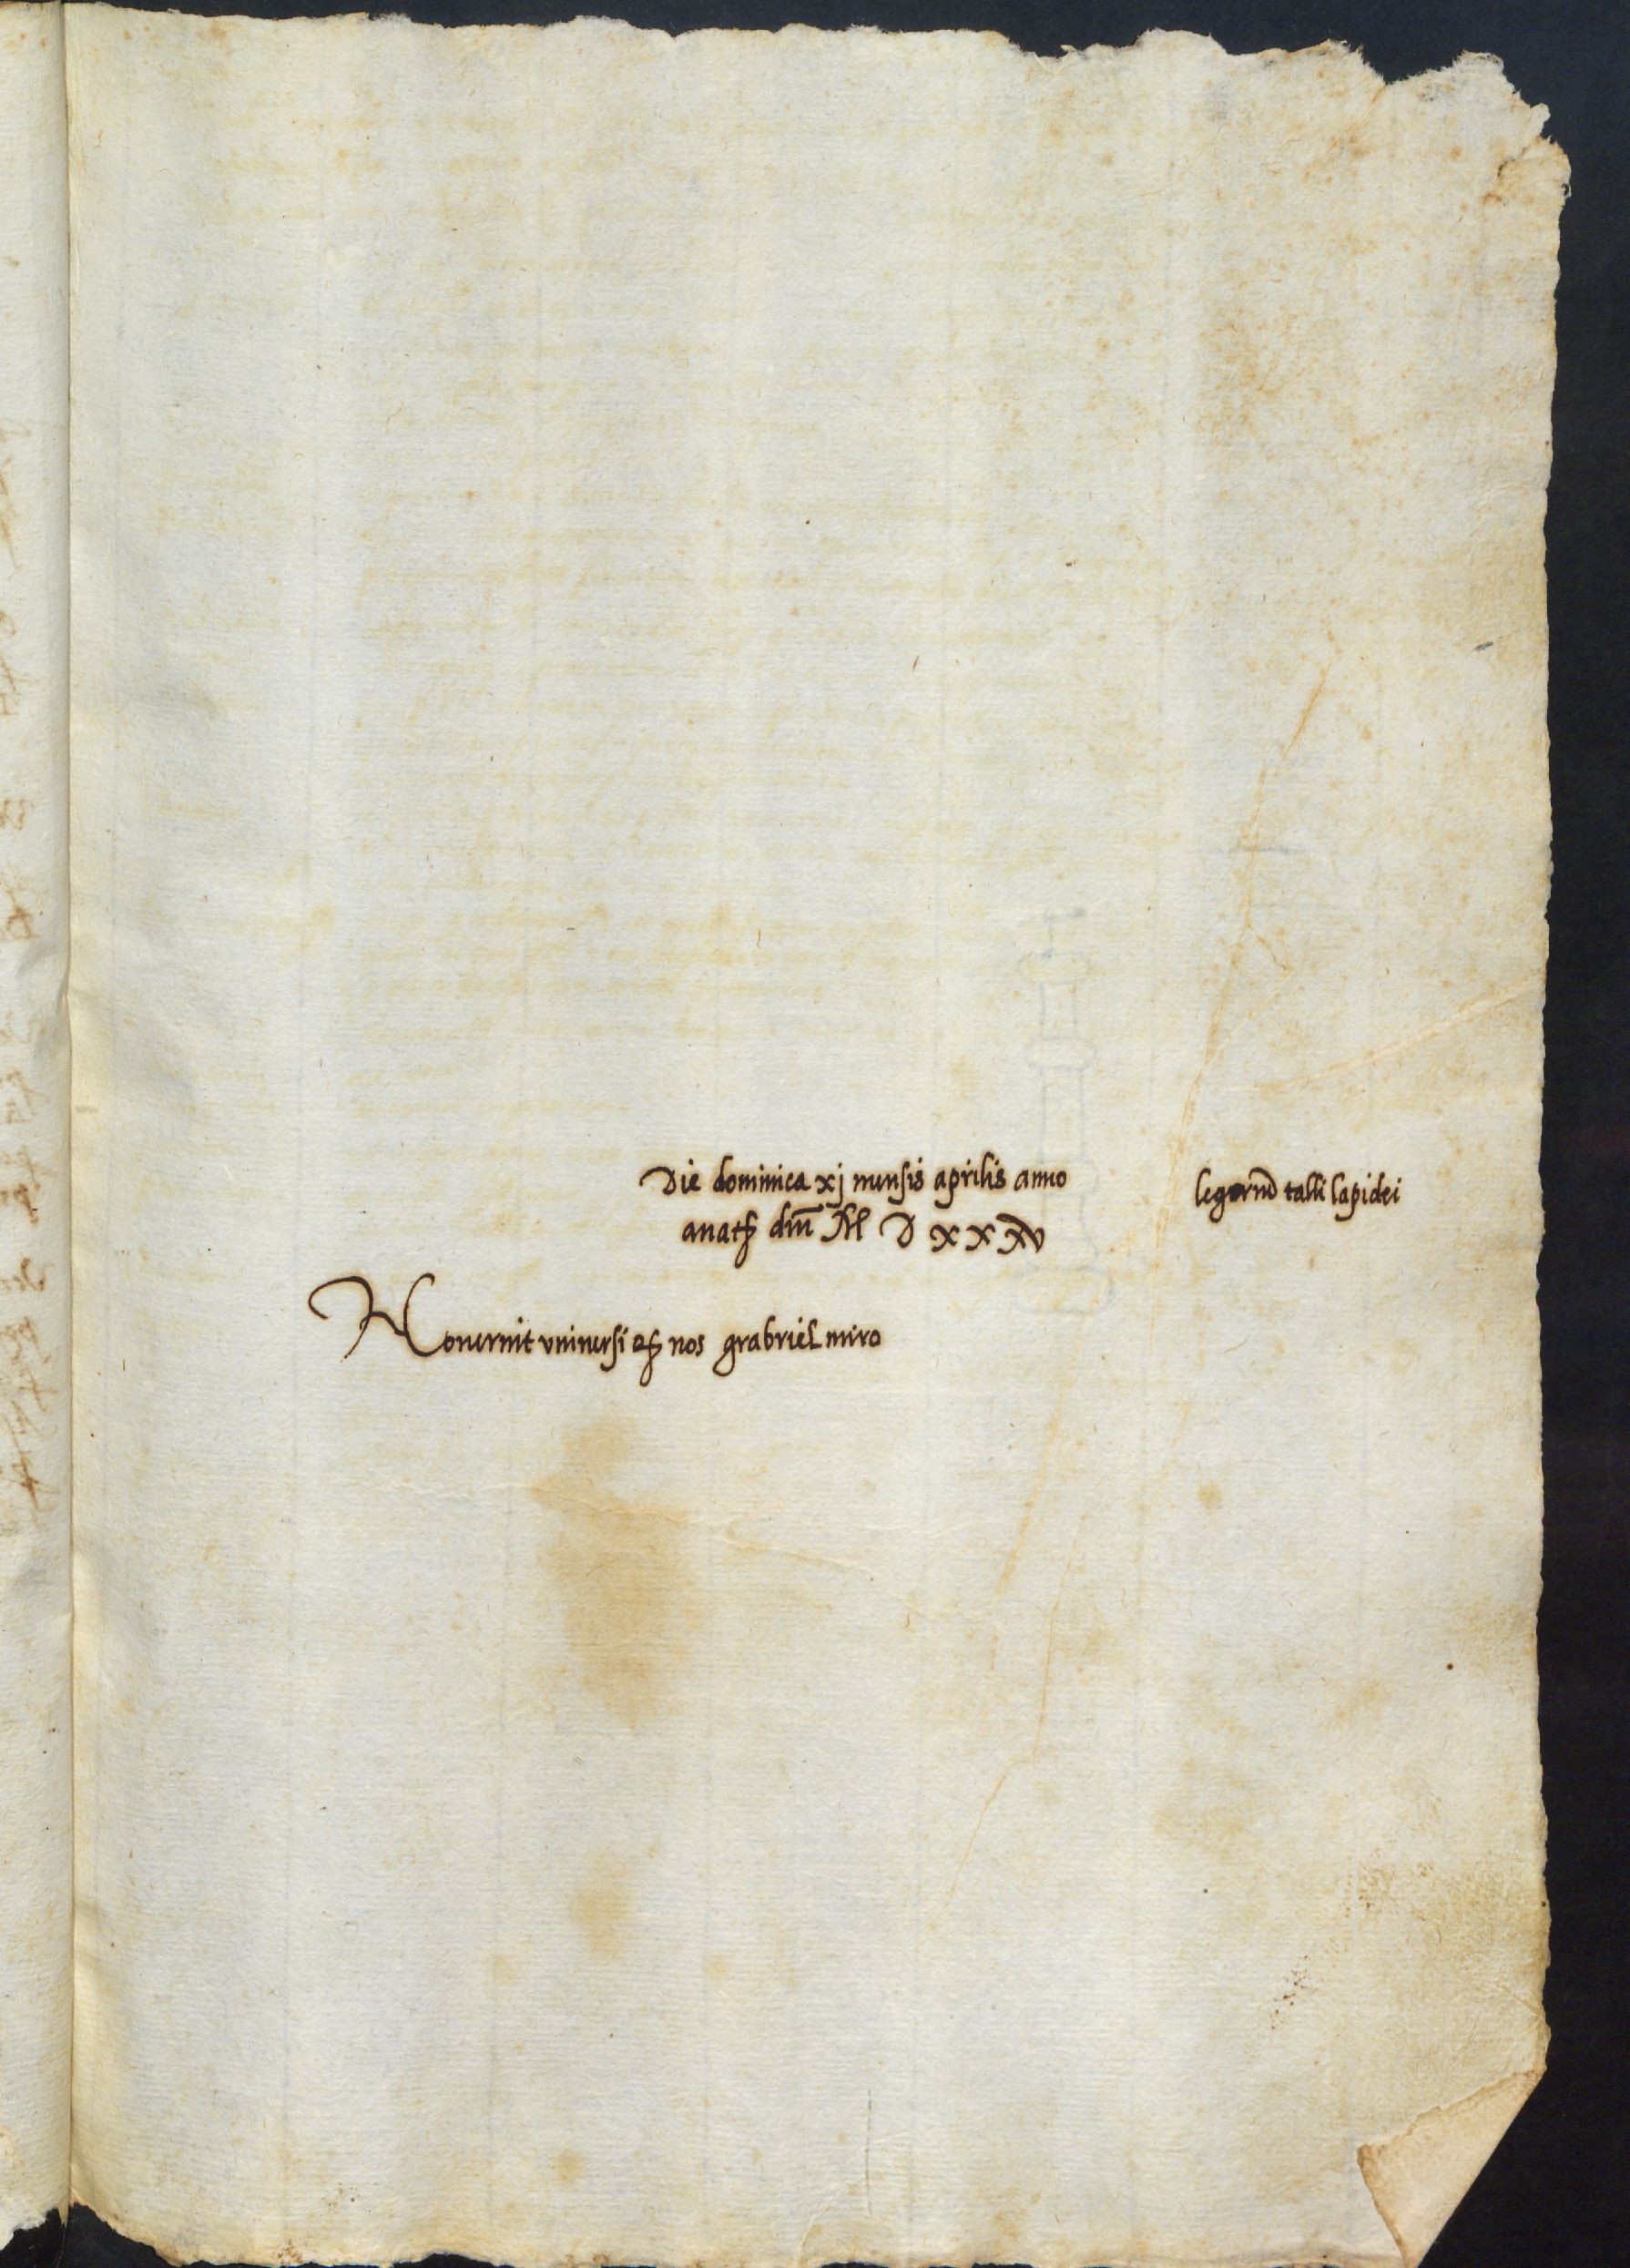 Die dominica xj mensis aprilis anno
anatꝭ dnī M D xxxv
legernd talli lapidei
Nouerint vniuersi qꝫ nos grabriel miro